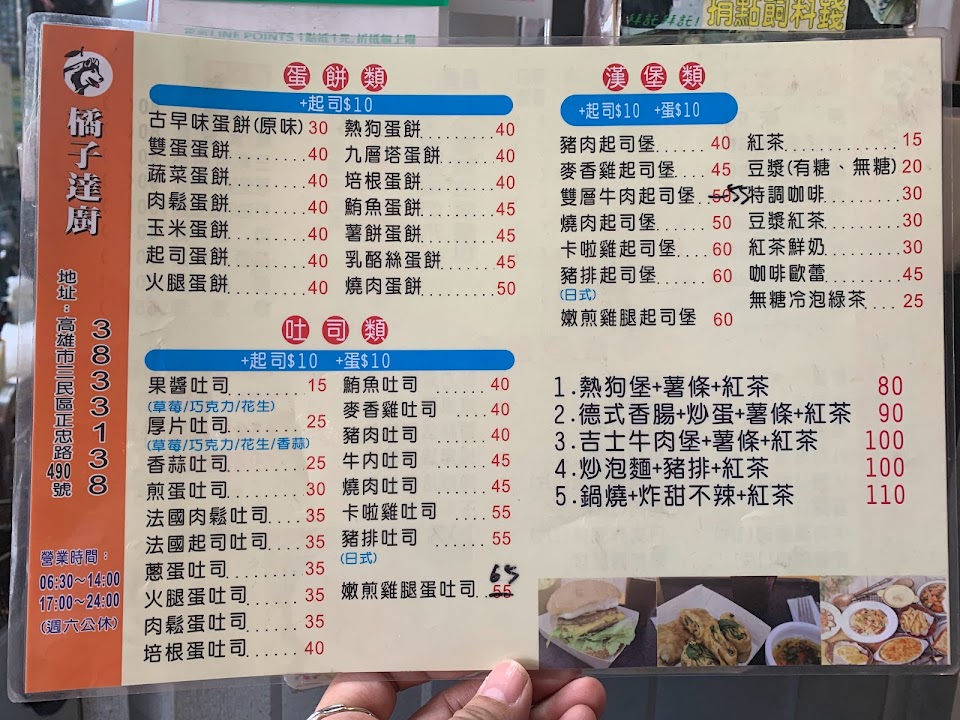 使用LINE POINTS 1點抵1元, 折抵無上限
拜託拜託!
捐點飼料錢
橘子達廚
地址：高雄市三民區正忠路490號
3833138
營業時間：
06:30～14:00
17:00～24:00
(週六公休)
蛋餅類
+起司$10
古早味蛋餅(原味) 30
雙蛋蛋餅 40
蔬菜蛋餅 40
肉鬆蛋餅 40
玉米蛋餅 40
起司蛋餅 40
火腿蛋餅 40
熱狗蛋餅 40
九層塔蛋餅 40
培根蛋餅 40
鮪魚蛋餅 45
薯餅蛋餅 45
乳酪絲蛋餅 45
燒肉蛋餅 50
吐司類
+起司$10 +蛋$10
果醬吐司 15
(草莓/巧克力/花生)
厚片吐司 25
(草莓/巧克力/花生/香蒜)
香蒜吐司 25
煎蛋吐司 30
法國肉鬆吐司 35
法國起司吐司 35
蔥蛋吐司 35
火腿蛋吐司 35
肉鬆蛋吐司 35
培根蛋吐司 40
鮪魚吐司 40
麥香雞吐司 40
豬肉吐司 40
牛內吐司 45
燒肉吐司 45
卡啦雞吐司 55
豬排吐司 55
(日式)
嫩煎雞腿蛋吐司 55 65
漢堡類
+起司$10 +蛋$10
豬肉起司堡 40
麥香雞起司堡 45
雙層牛肉起司堡 50 55
燒肉起司堡 50
卡啦雞起司堡 60
豬排起司堡 60
(日式)
嫩煎雞腿起司堡 60
紅茶 15
豆漿(有糖、無糖) 20
特調咖啡 30
豆漿紅茶 30
紅茶鮮奶 30
咖啡歐蕾 45
無糖冷泡綠茶 25
1.熱狗堡+薯條+紅茶 80
2.德式香腸+炒蛋+薯條+紅茶 90
3.吉士牛肉堡+薯條+紅茶 100
4.炒泡麵+豬排+紅茶 100
5.鍋燒+炸甜不辣+紅茶 110